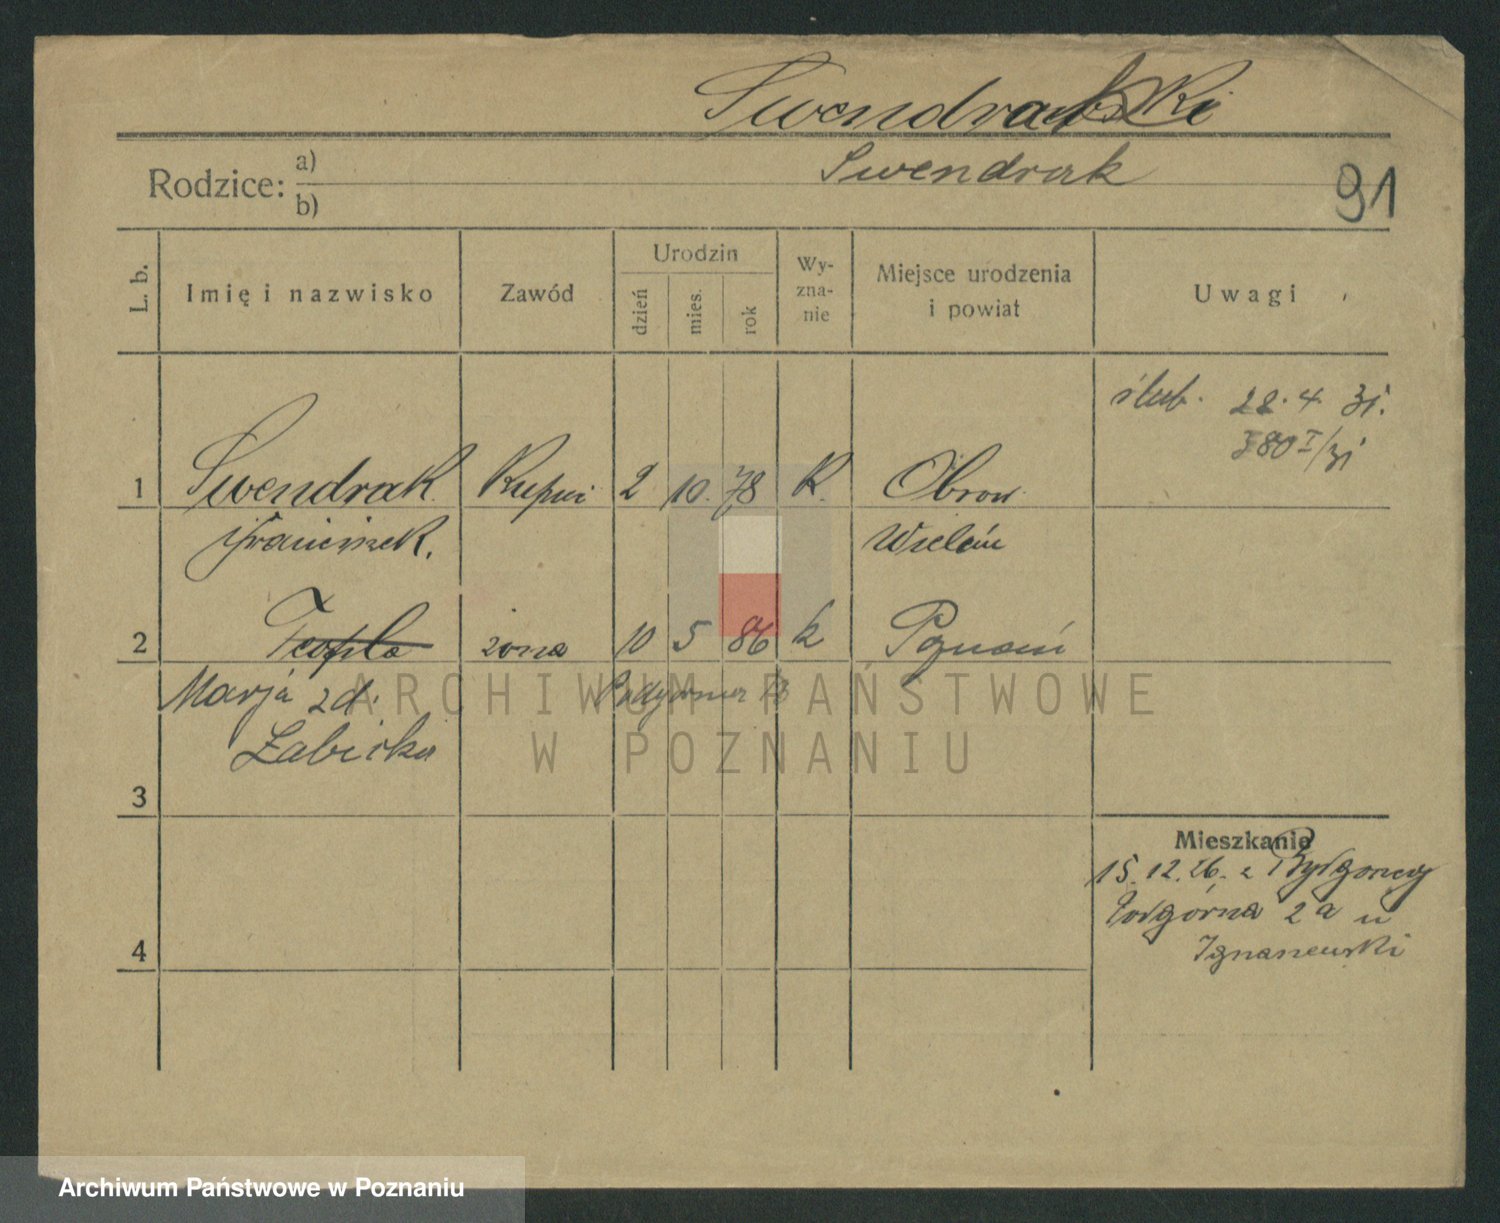 Swendrowski
Swendrak
Rodzice: a)
b)
91
L. b.
Imię i nazwisko
Zawód
Urodzin
dzień
mies.
rok
Wy-
zna-
nie
Miejsce urodzenia
i powiat
Uwagi
ślub. 28.4 31.
380 I/31
1 Swendrak Kupiec 2 10. 78 K. Obrow
Franciszek. Wieleń
2 Teofila żona 10 5 86 k Poznań
Marja 2d.
Żabicka
3
Mieszkanie
15.12.26. z Bydgoszczy
Podgórna 2a u
4
ARCHIWUM PAŃSTWOWE
W POZNANIU
Archiwum Państwowe w Poznaniu